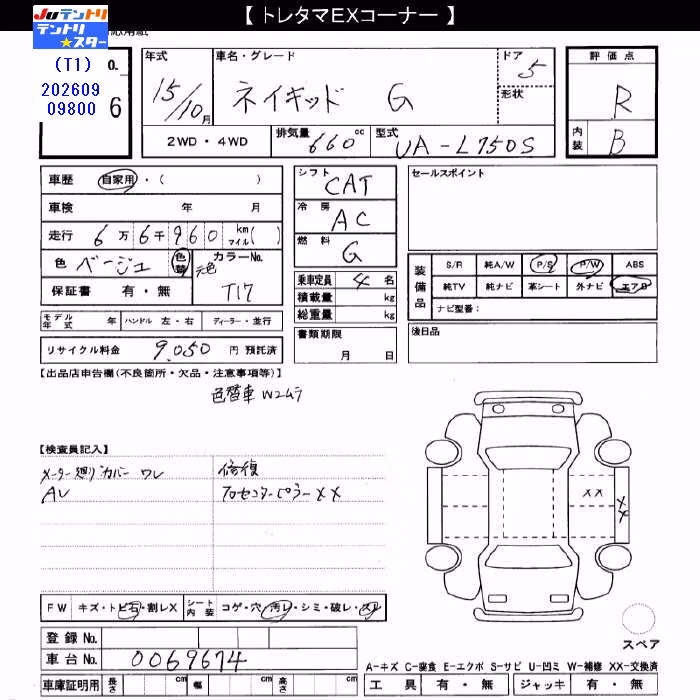 【 トレタマEXコーナー 】
Juテントリ
テントリ★スター
(T1)
202609
09800
o.
6
年式
15/10月
車名・グレード
ネイキッド G
ドア
5
形状
評価点
R
内装
B
2WD・4WD
排気量
660cc
型式
UA-L750S
車歴 自家用・( )
車検 年 月
走行 6万6千960 km マイル( )
色 ベージュ 色替 元色
カラーNo.
T17
保証書 有・無
モデル年式 年 ハンドル 左・右 ディーラー・並行
リサイクル料金 9,050 円 預託済
シフト
CAT
冷房
AC
燃料
G
乗車定員 4 名
積載量 kg
総重量 kg
書類期限
月 日
セールスポイント
装備品
S/R 純A/W P/S P/W ABS
純TV 純ナビ 革シート 外ナビ エアB
ナビ型番:
後日品
【出品店申告欄(不良箇所・欠品・注意事項等)】
色替車 W2ムラ
【検査員記入】
メーター廻りカバー ワレ
AU
修復
右センターピラーXX
XX
XX
FW キズ・トビ石・割レX
シート内装 コゲ・穴・汚レ・シミ・破レ・スレ
登録 No.
車台 No. 0069674
車庫証明用 長さ cm 幅 cm 高さ cm
スペア
A-キズ C-腐食 E-エクボ S-サビ U-凹ミ W-補修 XX-交換済
工具 有・無 ジャッキ 有・無